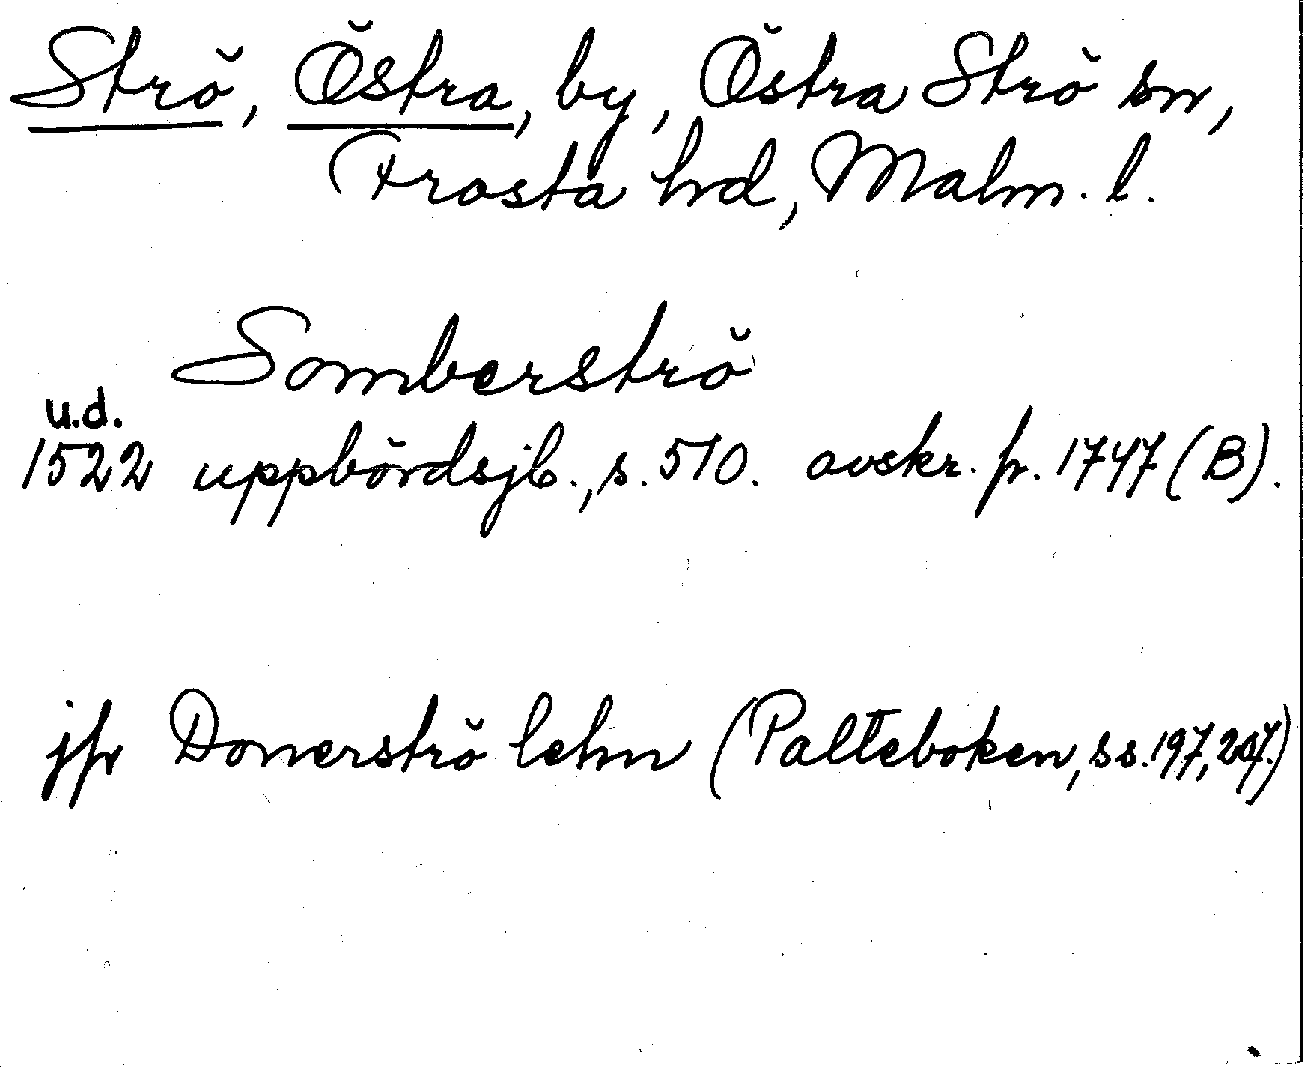 Strö, Östra, by, Östra Strö sn,
Frosta hd, Malm. l.
Somberströ
u.d.
1522 uppbördsjb., s. 510. avskr. fr. 1747 (B).
jfr Donerströ lehn (Palteboken, ss. 197, 207.)